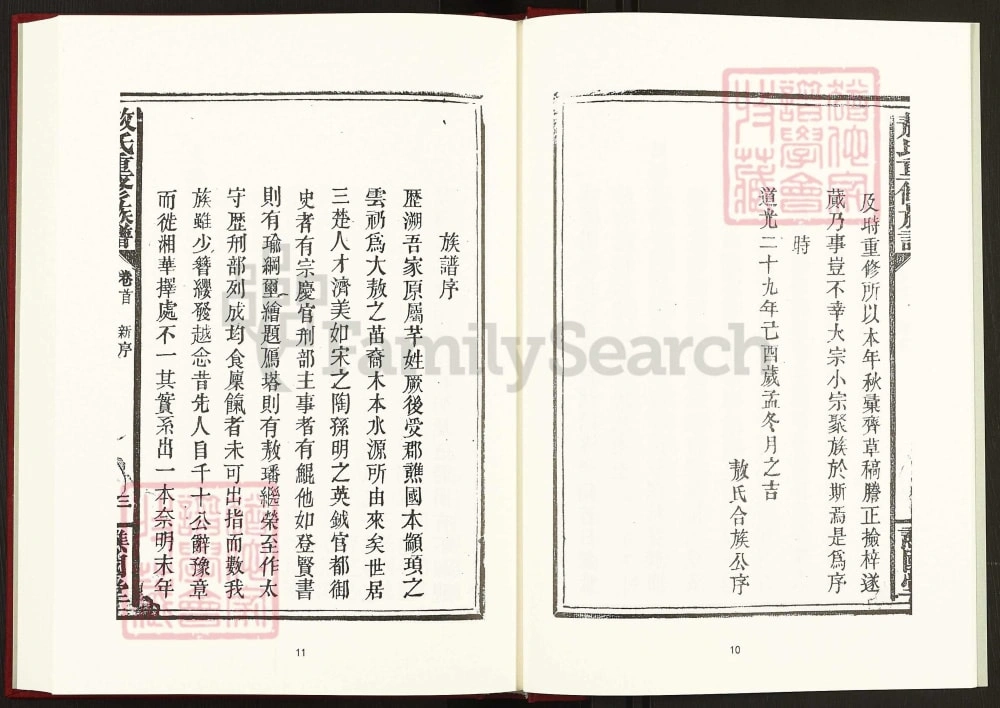 敖氏重修族譜
及時重修所以本年秋彙齊草稿謄正撿梓遂
蕆乃事豈不幸大宗小宗聚族於斯焉是為序
時
道光二十九年己酉歲孟冬月之吉
敖氏合族公序
10
族譜序
歷溯吾家原屬芊姓厥後受郡譙國本顓頊之
雲礽為大敖之苗裔木本水源所由來矣世居
三楚人才濟美如宋之陶孫明之英鉞官都御
史者有宗慶官刑部主事者有鯤他如登賢書
則有瑜綱璽繪題鴈塔則有敖璠繼榮至作太
守歷刑部列成均食廩餼者未可出指而數我
族雖少簪纓發越念昔先人自千十公辭豫章
而徙湘華擇處不一其實系出一本奈明末年
敖氏重修族譜
卷首
新序
三
譙國堂
11
FamilySearch